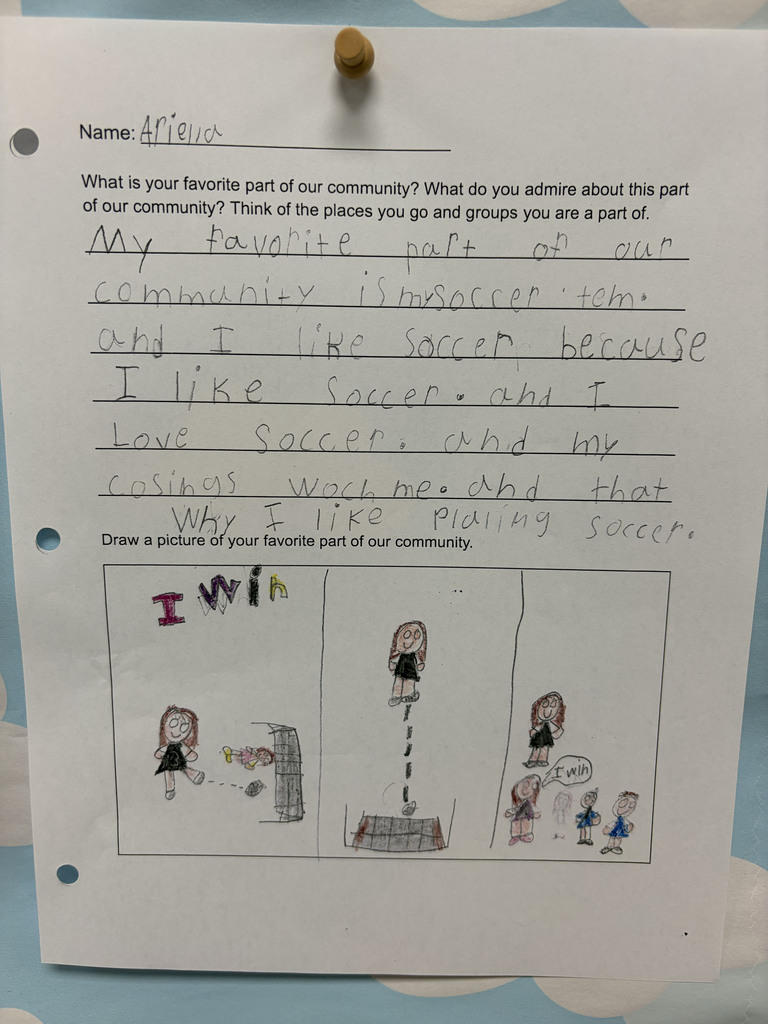 Name: Ariella
What is your favorite part of our community? What do you admire about this part
of our community? Think of the places you go and groups you are a part of.
My favorite part of our
community is my soccer tem.
and I like soccer because
I like soccer. and I
Love soccer. and my
cosings woch me. and that
Why I like plaiing soccer.
Draw a picture of your favorite part of our community.
I Win
I win